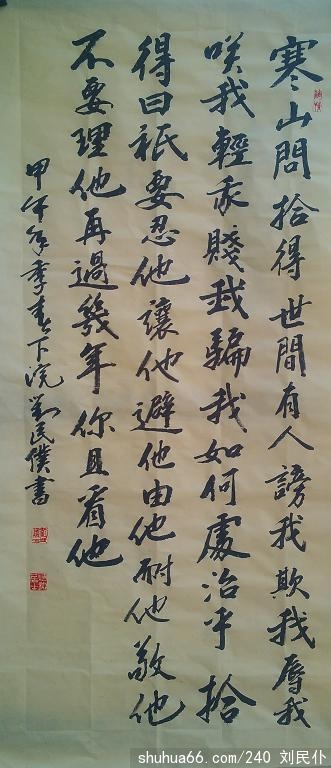 寒山問拾得世間有人謗我欺我辱我
咲我輕我賤我騙我如何處治乎拾
得曰祇要忍他讓他避他由他耐他敬他
不要理他再過幾年你且看他
甲午年季春下浣劉民僕書
shuhua66.com/240 刘民仆